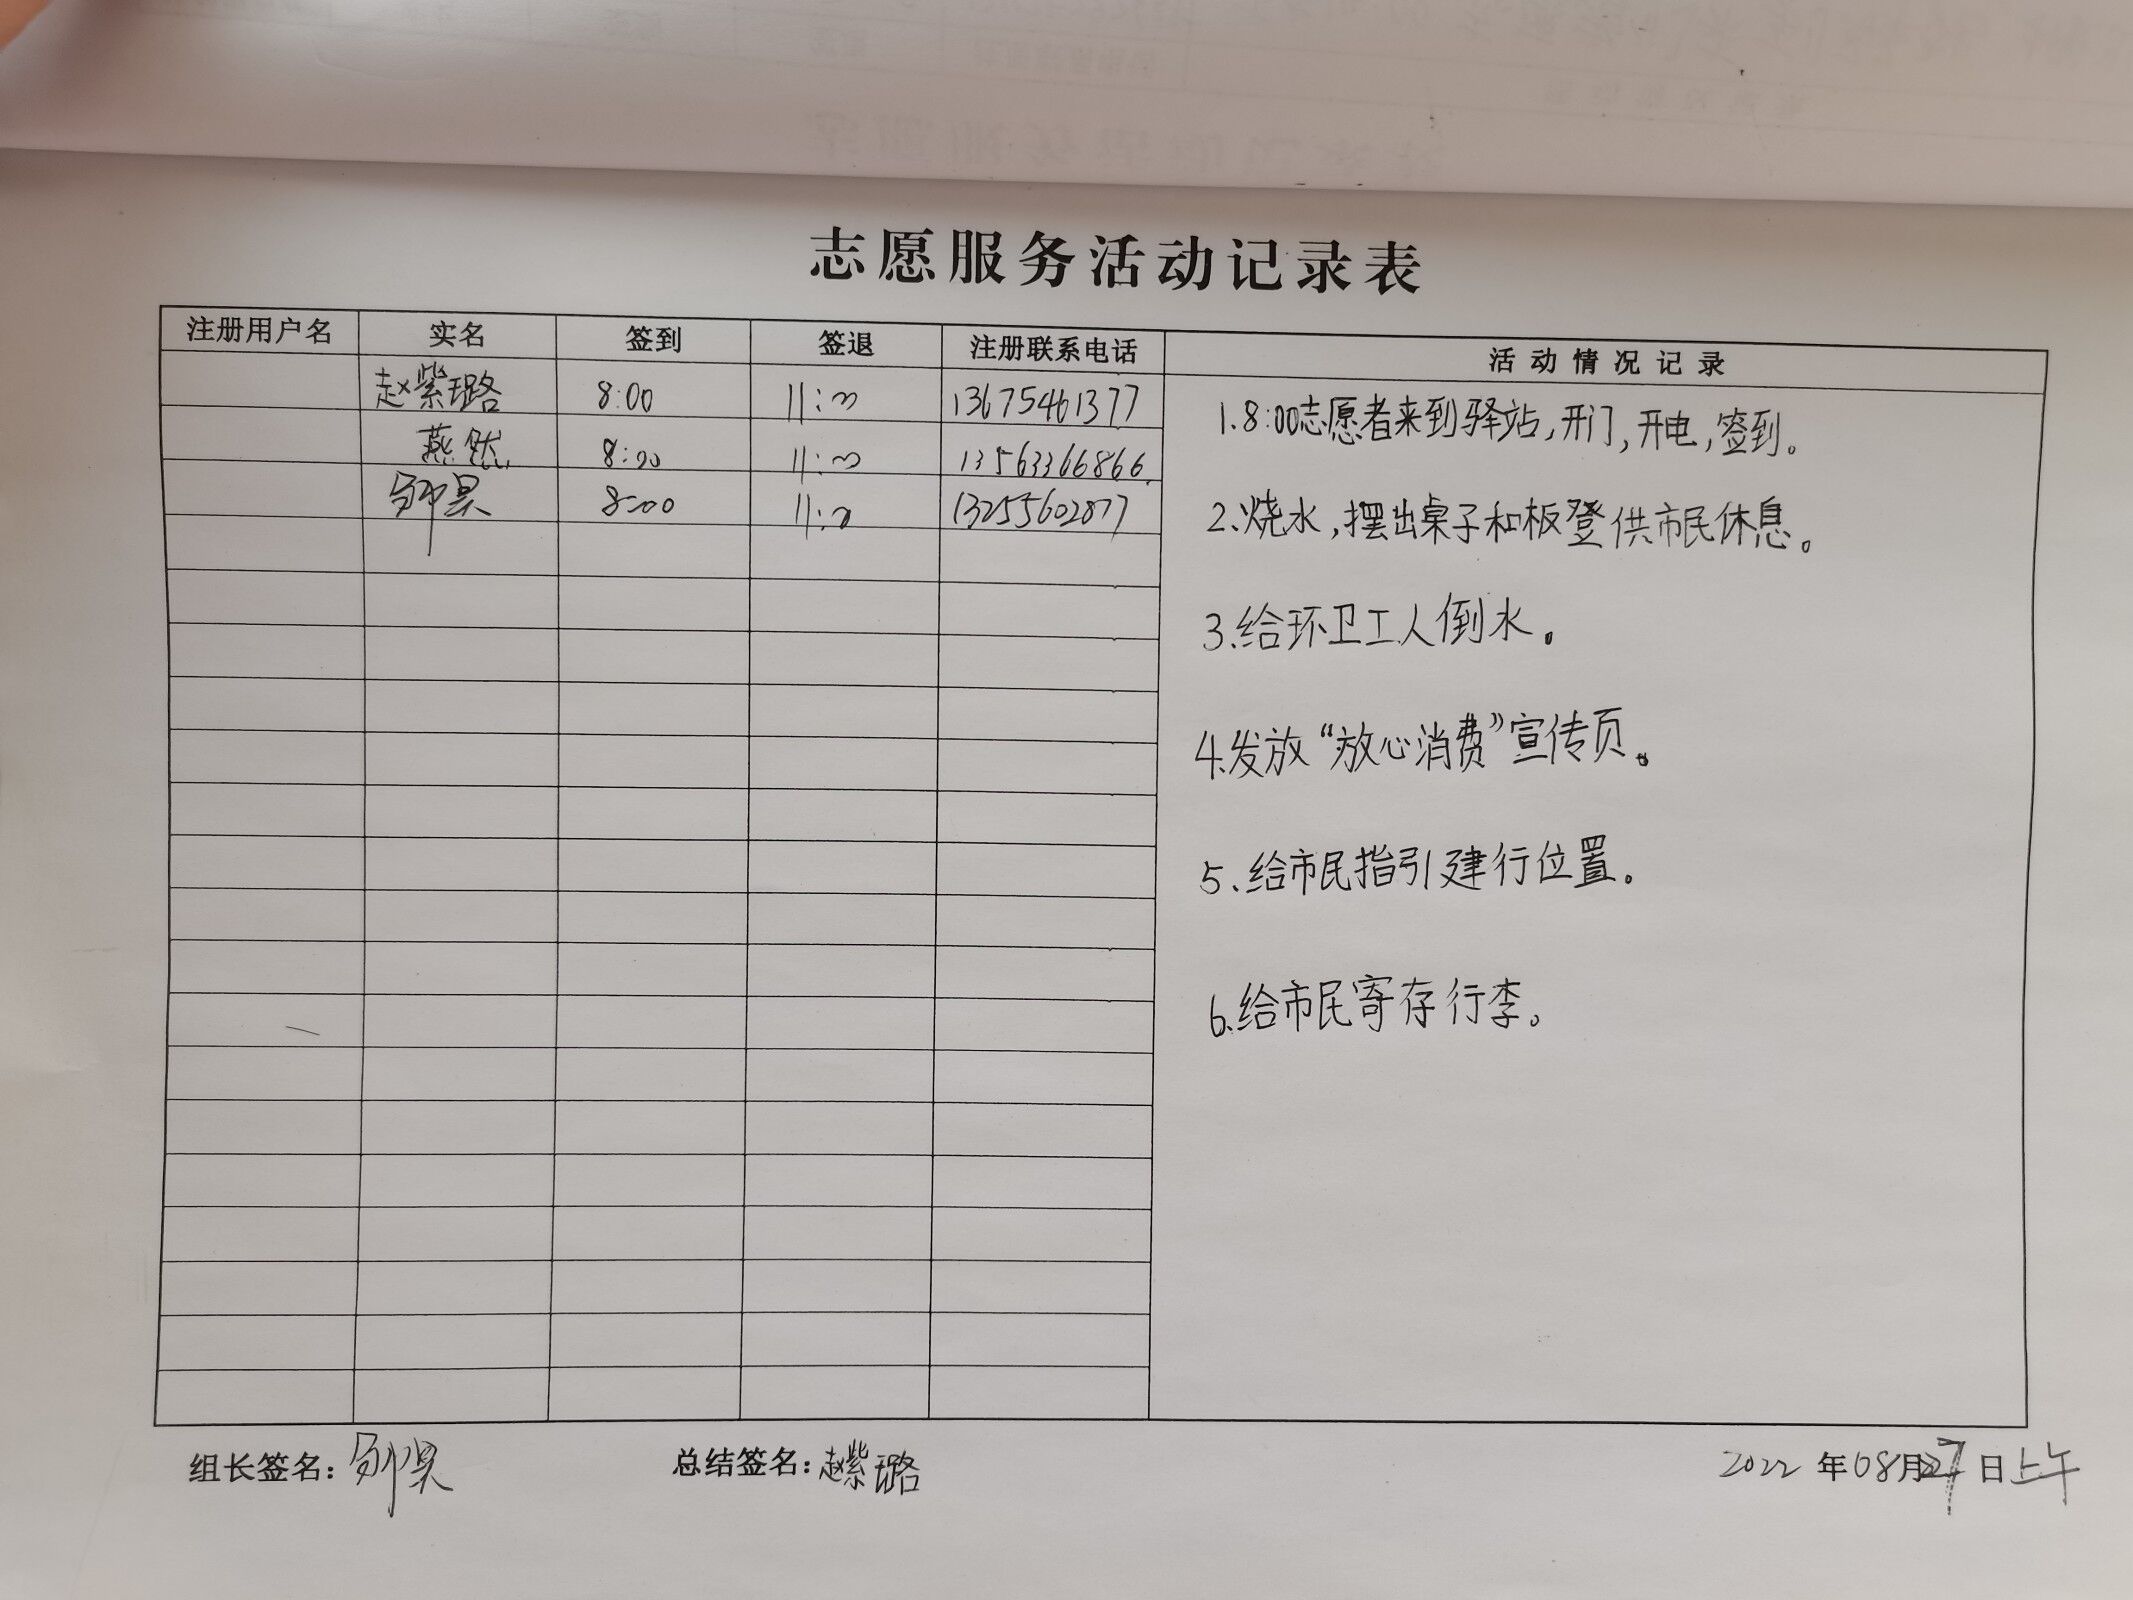 志愿服务活动记录表
注册用户名 实名 签到 签退 注册联系电话 活动情况记录
赵紫璐 8:00 11:00 13675461377
燕然 8:00 11:00 13563366866
8:00 11:00 13255602877
1.8:00志愿者来到驿站,开门,开电,签到。
2.烧水,摆出桌子和板登供市民休息。
3.给环卫工人倒水。
4.发放“放心消费”宣传页。
5.给市民指引建行位置。
6.给市民寄存行李。
组长签名: 总结签名:赵紫璐 2022年08月27日上午